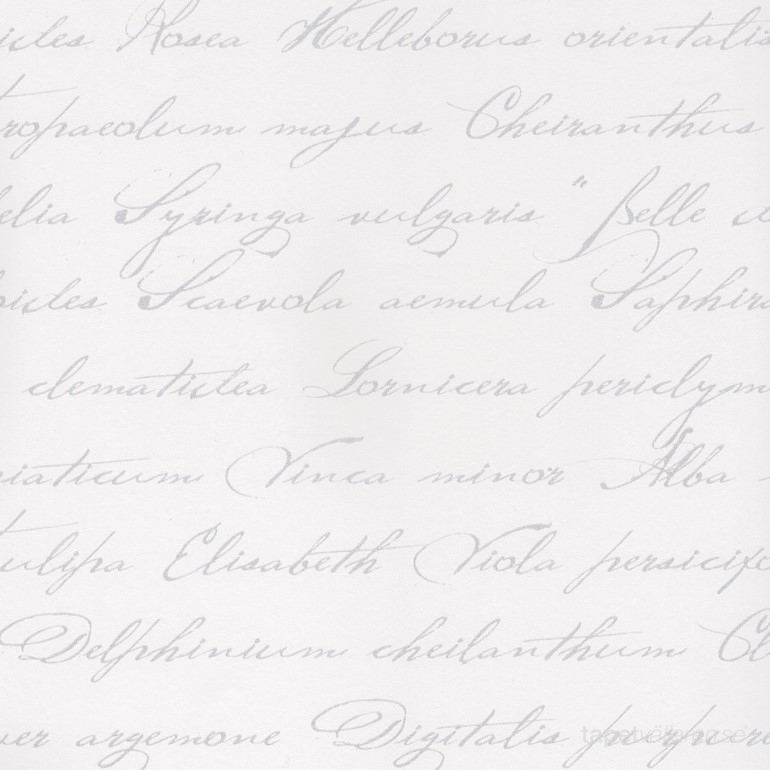 ides Rosea Helleborus orientalis
ropaeolum majus Cheiranthus
elia Syringa vulgaris "Belle d
oides Scaevola aemula Saphir
clematidea Lornicera periclym
iaticum Vinca minor Alba -
ulipa Elisabeth Viola persicifo
Delphinium cheilanthum Cl
ver argemone Digitalis purpure